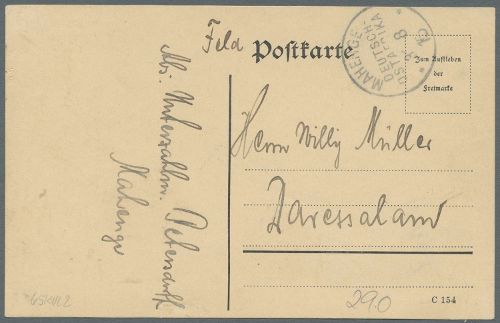 Feld Postkarte
MAHENGE
DEUTSCH-
OSTAFRIKA
3 8
15
Zum Aufkleben
der
Freimarke
Herrn Willy Müller
Daressalam
Abs. Unterzahlm. Petersdorff
Mahenge
290
C 154